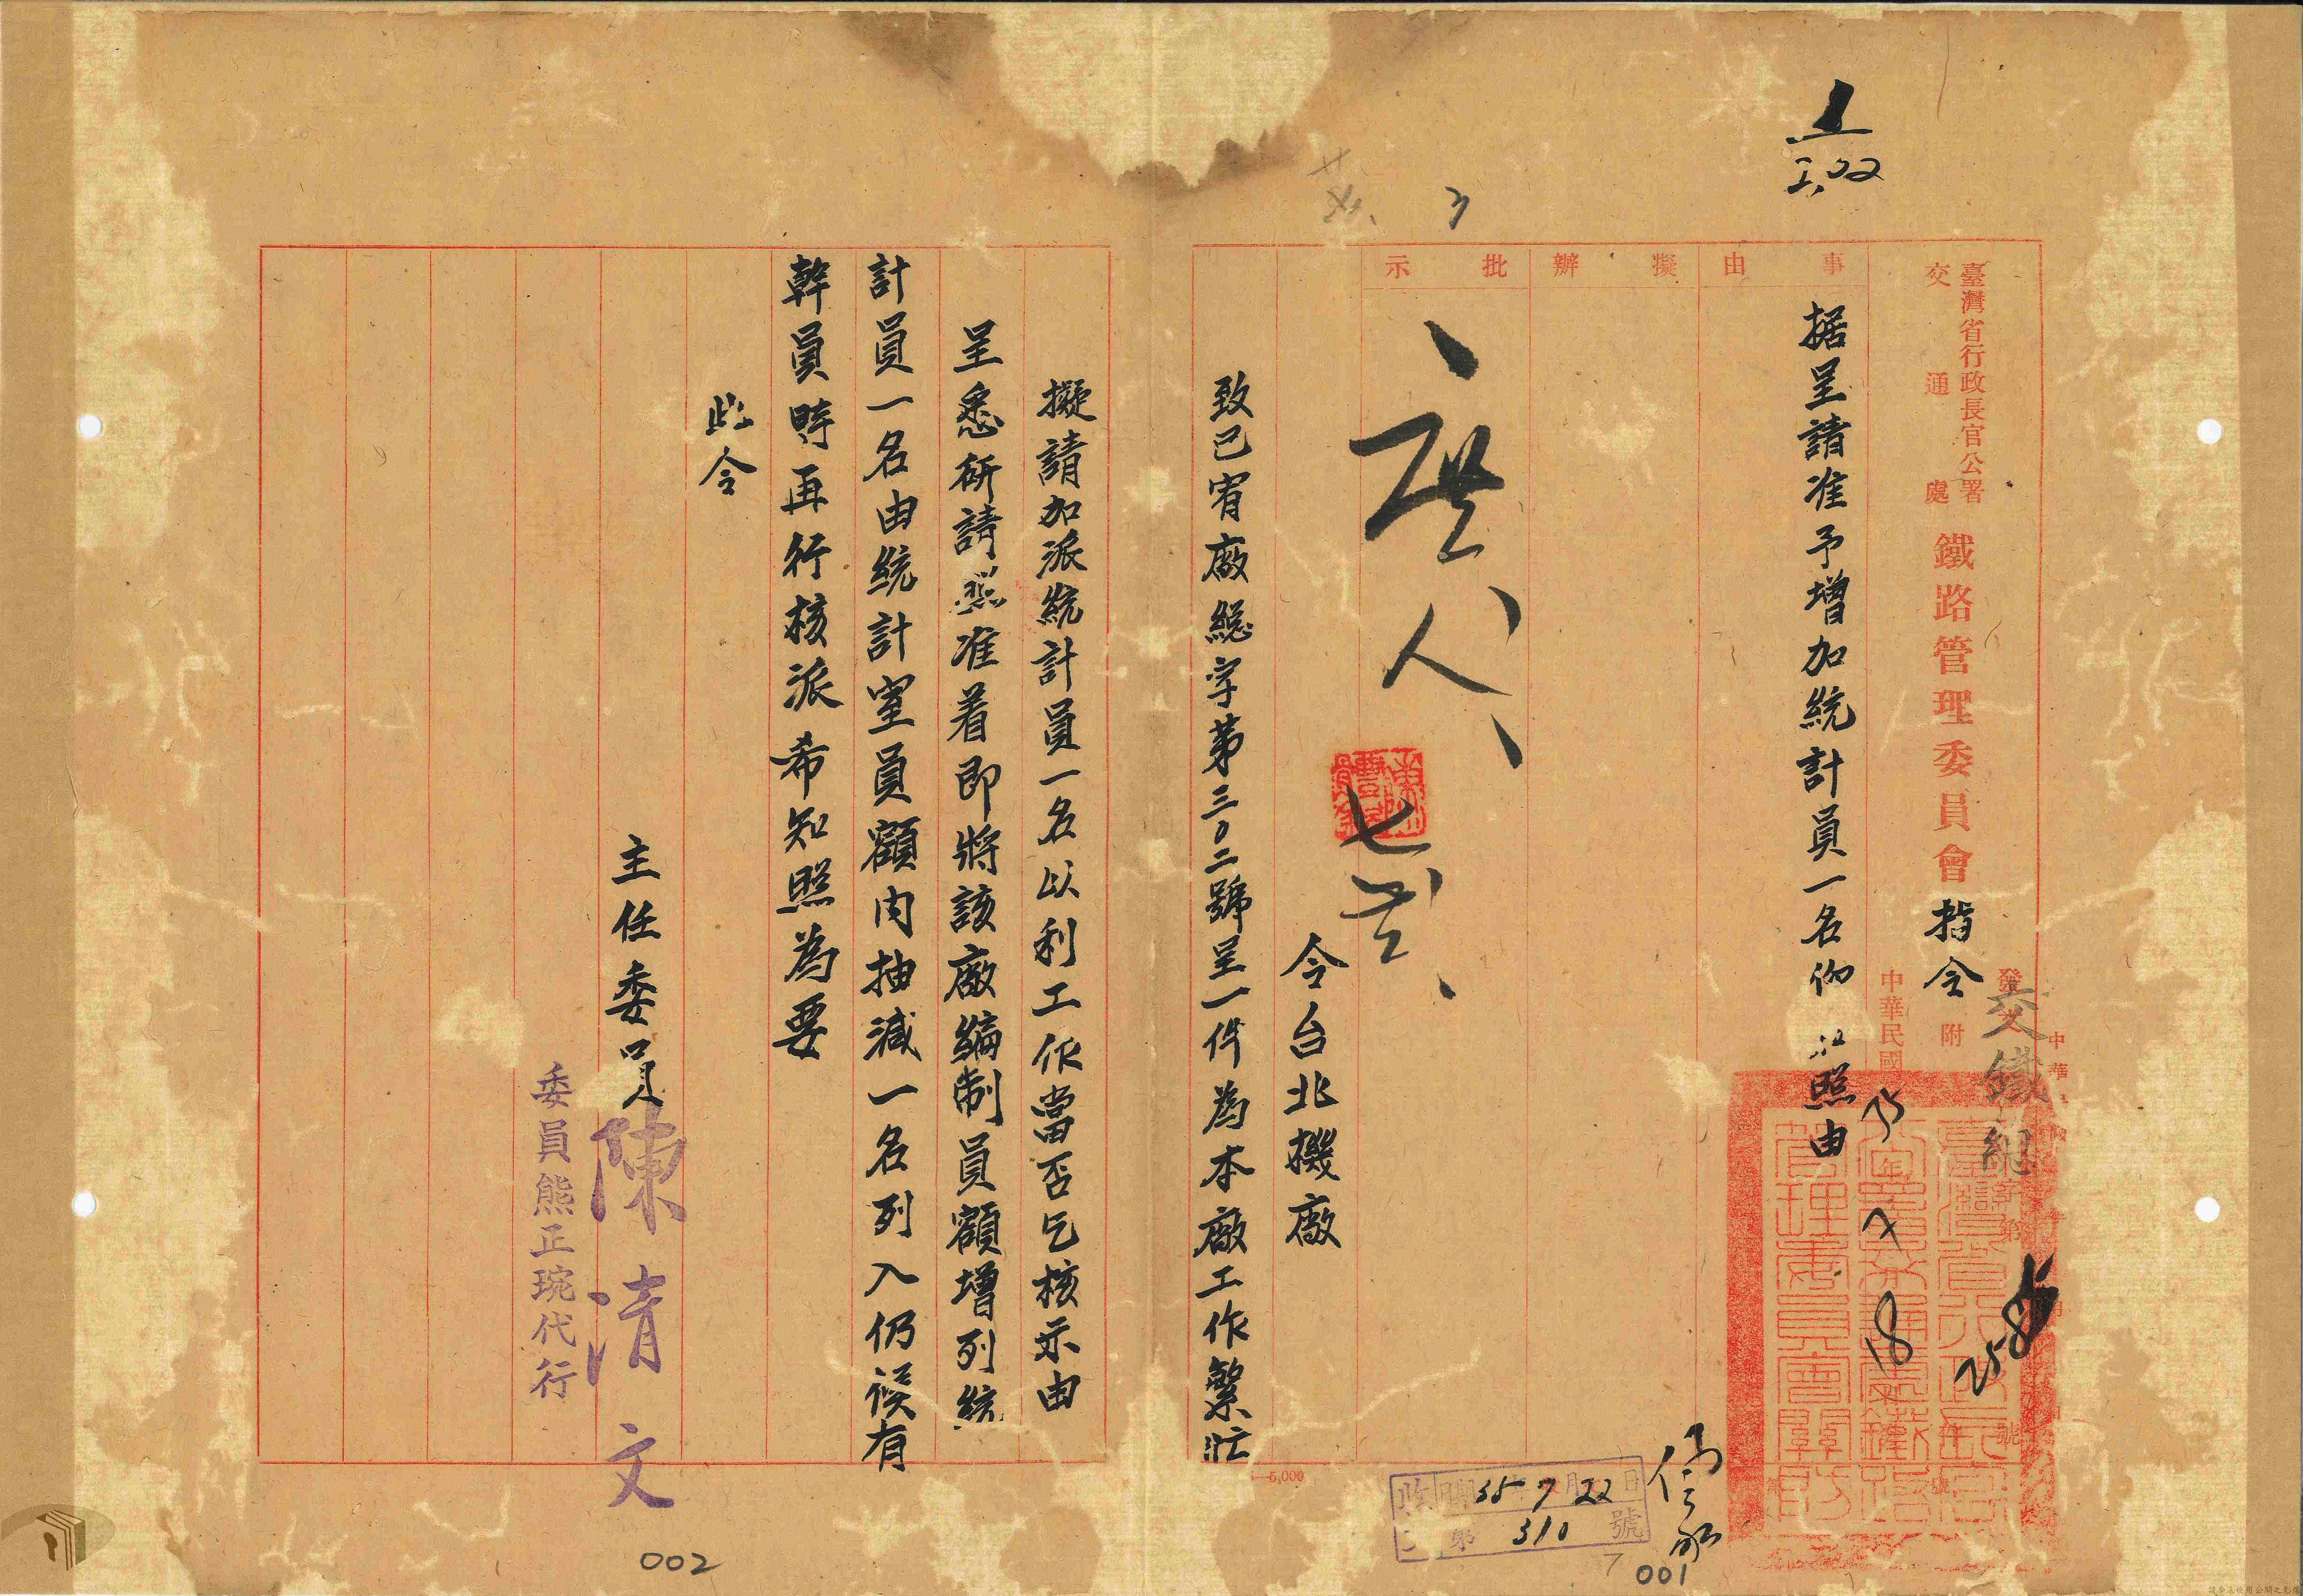 臺灣省行政長官公署
交通處
鐵路管理委員會
指令
附
發文
交鐵組
字第
號
中華民國
年
35
7
18
事由
擬辦
批示
据呈請准予增加統計員一名仰 照由
令台北機廠
致已宥廠総字第三〇二號呈一件為本廠工作繁忙
擬請加派統計員一名以利工作當否乞核示由
呈悉所請照准着即將該廠編制員額增列統
計員一名由統計室員額内抽減一名列入仍候有
幹員時再行核派希知照為要
此令
主任委員 陳清文
委員熊正琬代行
35 7 22 日
第 310 號
5,000
001
002